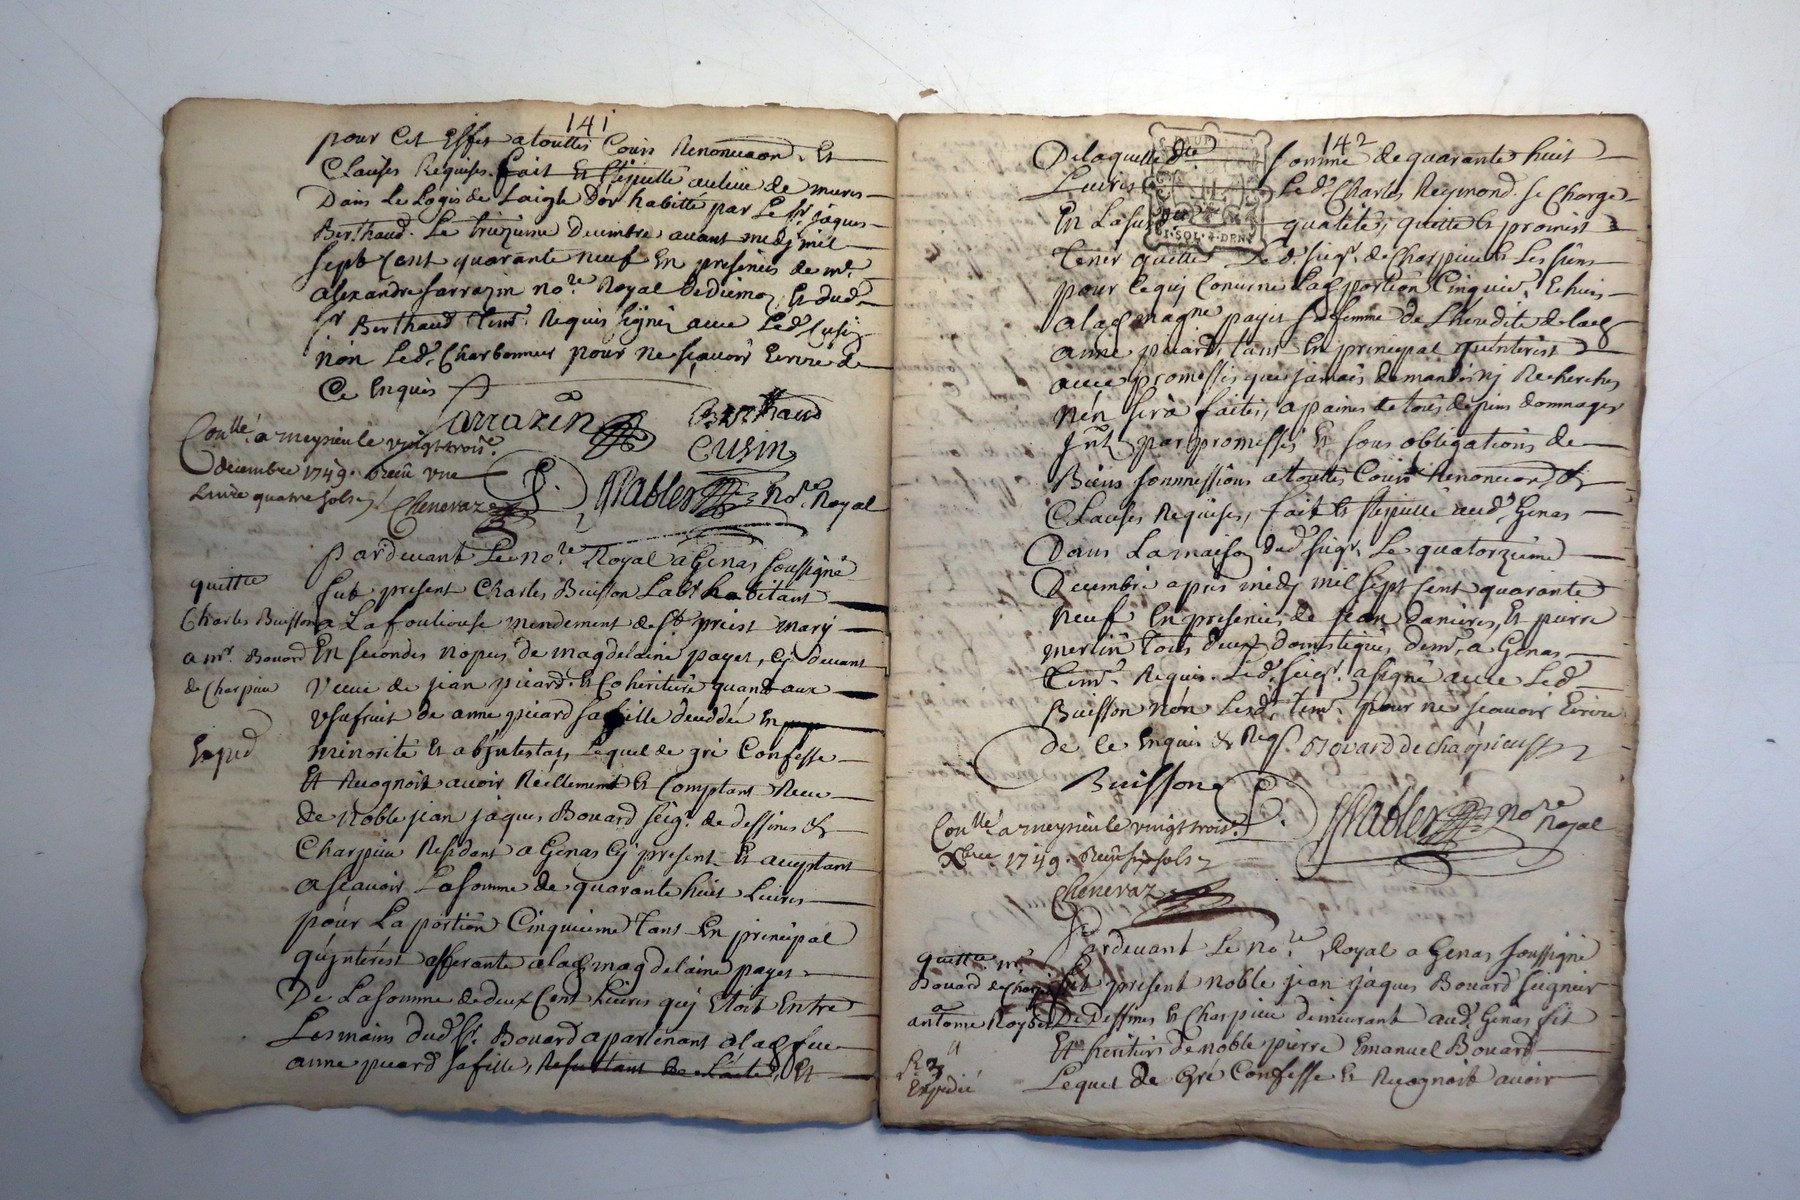 141
pour cet Effet atouttes Cours Renonciaon, Et
Clauses Requises. fait Et stipullé au lieu de mures
Dans Le Logis de Laigle Dor habitté par Le sr. jaques
Berthaud. Le treizieme Decembre avant midj mil
sept Cent quarante neuf En presences de me.
alexandre Sarrazin nore. Royal de diemoz Et dud.
sr. Berthaud tem. Requis signés avec Led. Cusin
non Led. Charbonneir pour ne sçavoir Ecrire de
Ce Enquis
Sarrazin Berthaud
Cusin
Conllé. a meysieu le vingt trois.
decembre 1749. Receu une
Livre quatre sols
Chenevaz
Pardevant Le nore. Royal a Genas soussigné
quittce
fut present Charles Buisson Labr habitant
Charles Buisson
a La fouliouse mendement de St. priest mary
a mr. Bouard
En secondes nopces de magdelaine payet, Cy devant
de Charpieu
veuve de jean picard Et Coheritiere quand aux
usufruit de anne picard sa fille deceddée En
Expéd
minorité Et abjntestat, Lequel de gré Confesse
Et Recognoit avoir Reellement Et Comptant Receu
de Noble jean jaques Bouard seigr. de dessines &
Charpieu Residant a Genas Cy present Et acceptant
asçavoir La somme de quarante huit Livres
pour La portion Cinquieme tant En principal
qu'jnterest afferante alad. magdelaine payet
De La somme de deux Cent Livres quj Etoit Entre
Les mains dud. sr. Bouard apartenant alad. feue
anne picard sa fille, Resultant de L'acte, Et
142
De laquelle dte somme de quarante huit
Livres Led. Charles Reymond se Charge
En La sus dte qualité, quitte Et promist
tenir quitte Led. seigr. de Charpieu Et Les siens
pour Ce quj Concerne Lad. portion Cinquie. Echuis
alad. magne payet sa femme de L'heredité de lad.
anne picard, tant En principal qu'interest
avec promesses que jamais demandes nj Recherches
n'en sera faites, a paines de tous depens domnages
Jnt. par promesses Et sous obligations de
Biens soummissions atouttes Cours Renonciaon &
Clauses Requises, fait Et stipullé aud. Genas
Dans La maison dud. seigr. Le quatorzieme
Decembre apres midj mil sept Cent quarante
neuf En presences de jean danieres, Et pierre
merlin tous deux domestiques demt. a Genas
tem. Requis. Led. seigr. a signé avec Led.
Buisson non Lesd. tem. pour ne sçavoir Ecrire
de Ce Enquis & Reqs. Bouard de charpieu
Buisson
nore Royal
Conllé. a meysieu le vingt trois.
Xbre 1749. Receu six sols
Chenevaz
Pardevant Le nore. Royal a Genas soussigné
quittce mr.
fut present noble jean jaques Bouard seigneur
Bouard de Charpieu
a
De dessines Et Charpieu demeurant aud. Genas fils
antoine
Et heritier de noble pierre Emanuel Bouard
Lequel de Gré Confesse Et Recognoit avoir
Expedié